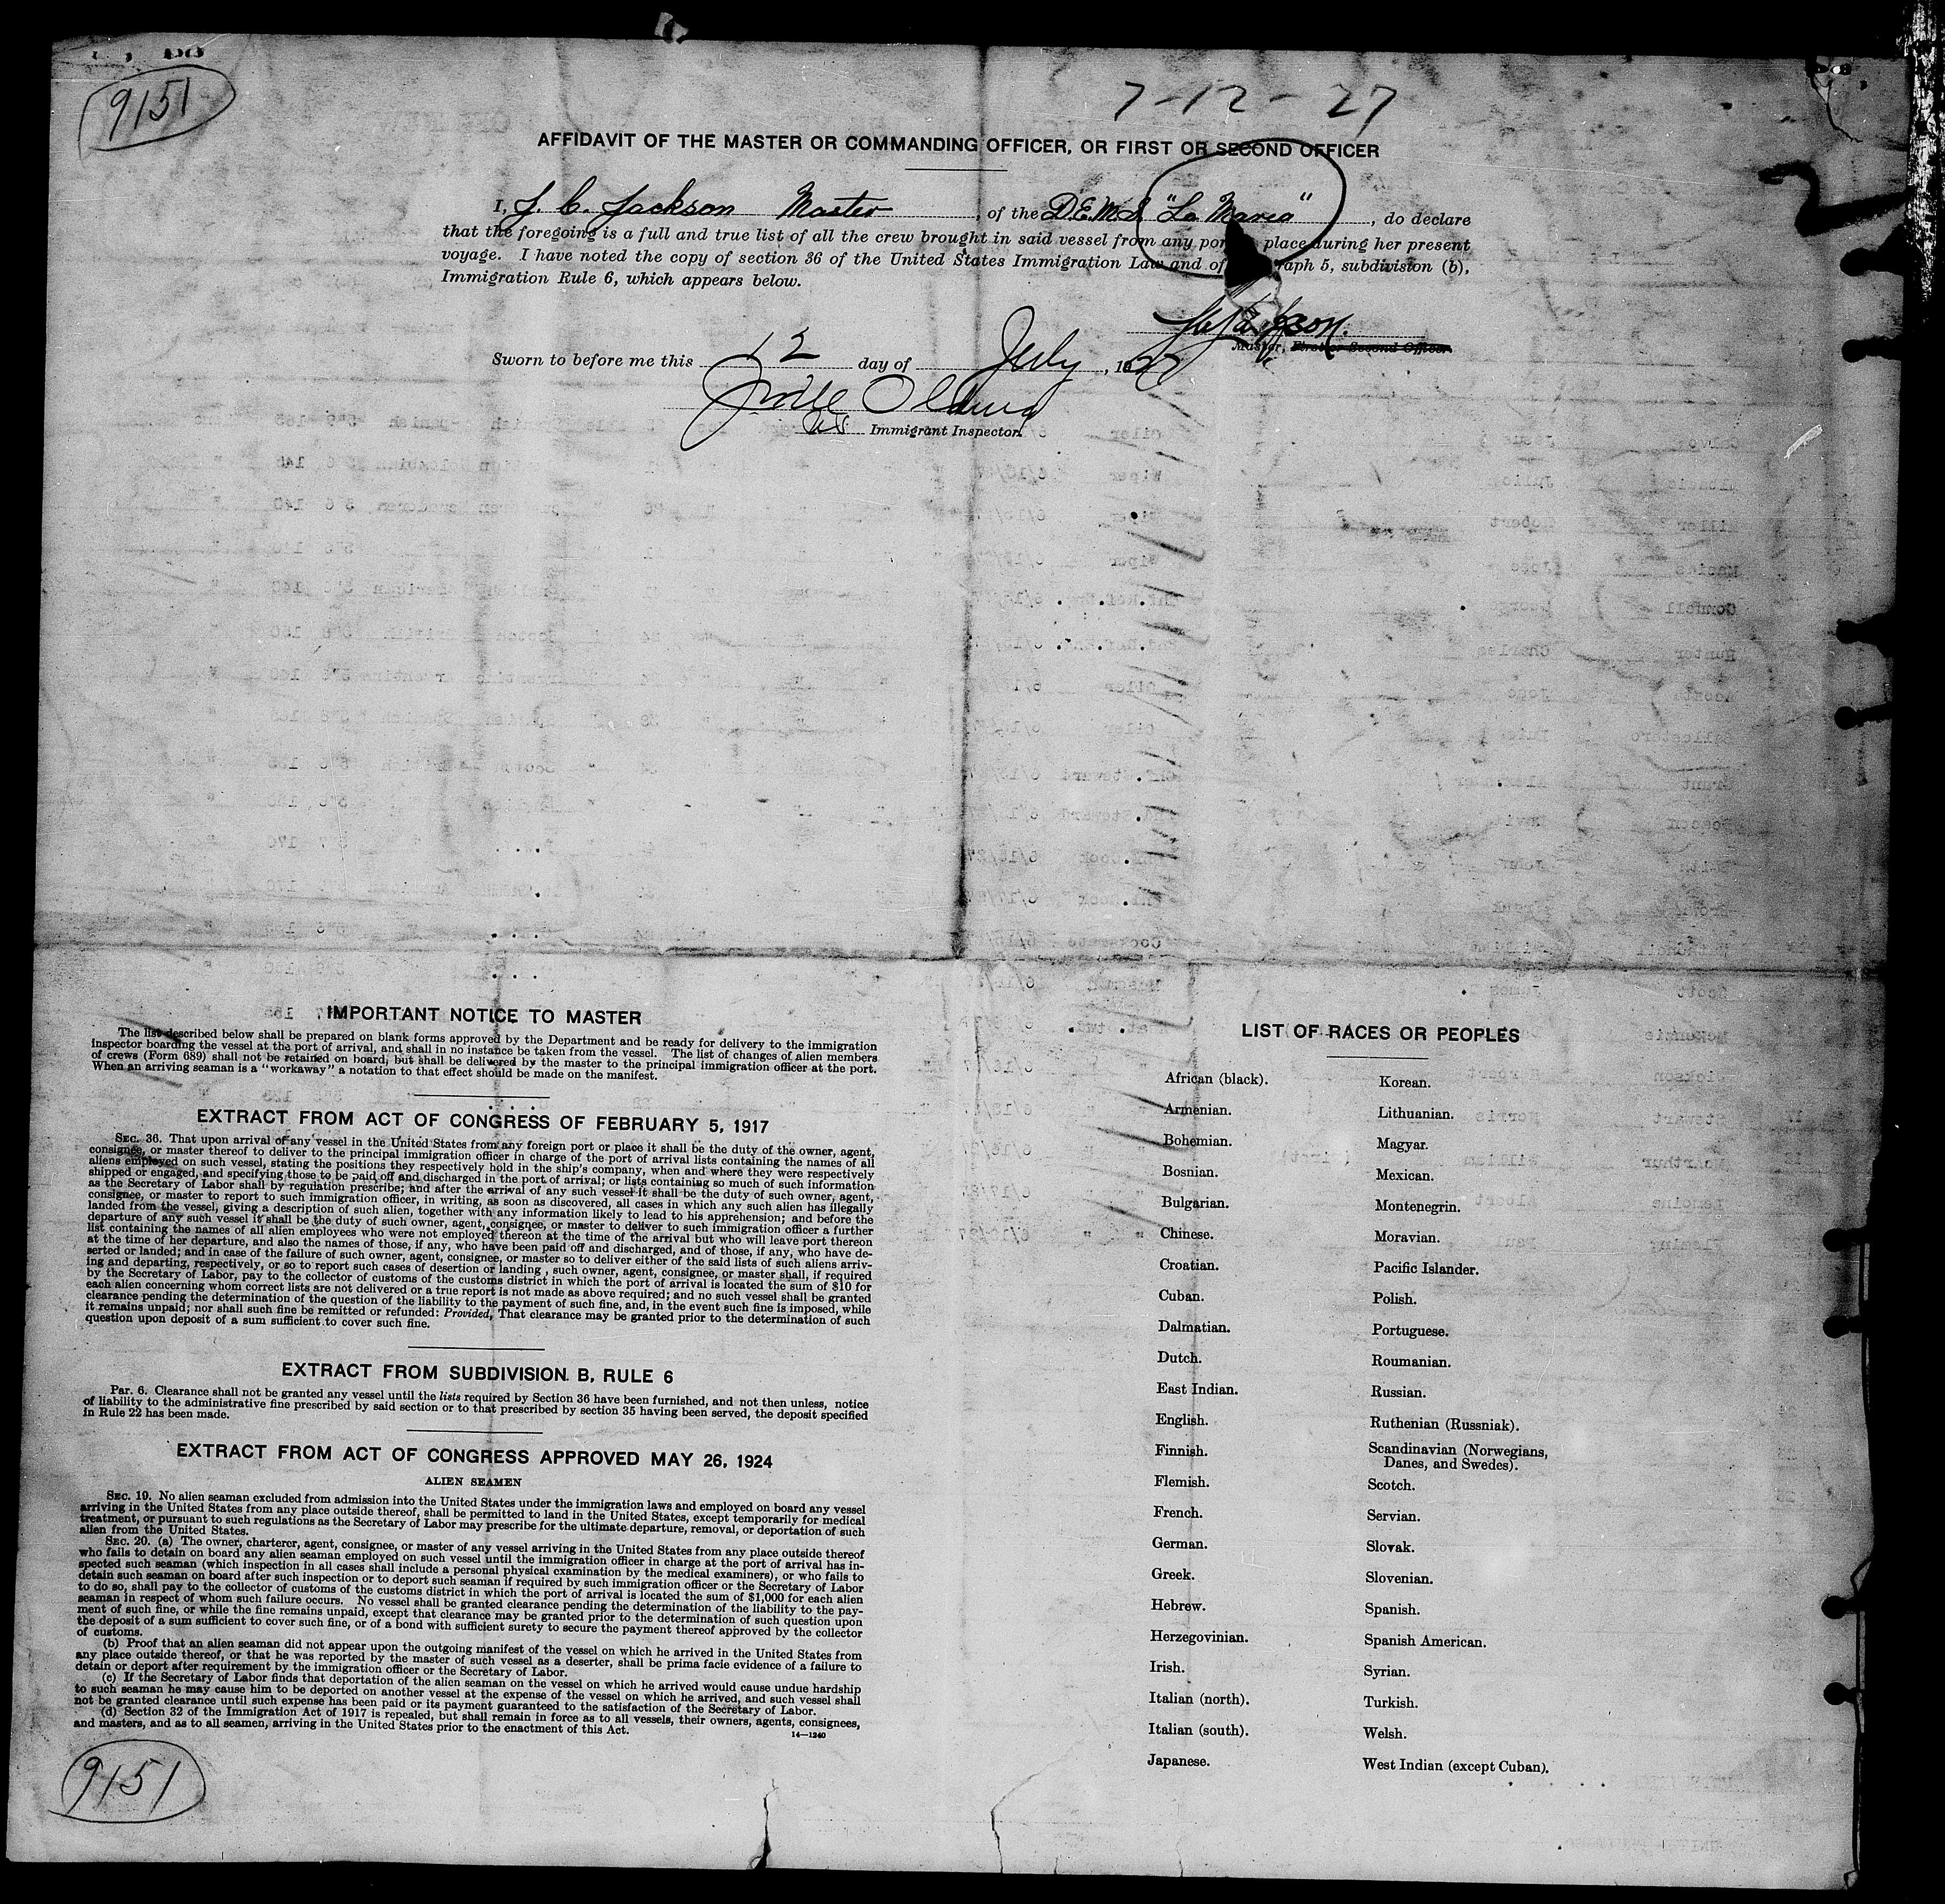 9151
7-12-27
AFFIDAVIT OF THE MASTER OR COMMANDING OFFICER, OR FIRST OR SECOND OFFICER
I, J. C. Jackson Master, of the D.E.M.S. "La Marea", do declare
that the foregoing is a full and true list of all the crew brought in said vessel from any por place during her present
voyage. I have noted the copy of section 36 of the United States Immigration Law and of raph 5, subdivision (b),
Immigration Rule 6, which appears below.
Master, First or Second Officer.
Sworn to before me this 12 day of July, 1927
Immigrant Inspector.
IMPORTANT NOTICE TO MASTER
The list described below shall be prepared on blank forms approved by the Department and be ready for delivery to the immigration
inspector boarding the vessel at the port of arrival, and shall in no instance be taken from the vessel. The list of changes of alien members
of crews (Form 689) shall not be retained on board, but shall be delivered by the master to the principal immigration officer at the port.
When an arriving seaman is a "workaway" a notation to that effect should be made on the manifest.
EXTRACT FROM ACT OF CONGRESS OF FEBRUARY 5, 1917
SEC. 36. That upon arrival of any vessel in the United States from any foreign port or place it shall be the duty of the owner, agent,
consignee, or master thereof to deliver to the principal immigration officer in charge of the port of arrival lists containing the names of all
aliens employed on such vessel, stating the positions they respectively hold in the ship's company, when and where they were respectively
shipped or engaged, and specifying those to be paid off and discharged in the port of arrival; or lists containing so much of such information
as the Secretary of Labor shall by regulation prescribe; and after the arrival of any such vessel it shall be the duty of such owner, agent,
consignee, or master to report to such immigration officer, in writing, as soon as discovered, all cases in which any such alien has illegally
landed from the vessel, giving a description of such alien, together with any information likely to lead to his apprehension; and before the
departure of any such vessel it shall be the duty of such owner, agent, consignee, or master to deliver to such immigration officer a further
list containing the names of all alien employees who were not employed thereon at the time of the arrival but who will leave port thereon
at the time of her departure, and also the names of those, if any, who have been paid off and discharged, and of those, if any, who have de-
serted or landed; and in case of the failure of such owner, agent, consignee, or master so to deliver either of the said lists of such aliens arriv-
ing and departing, respectively, or so to report such cases of desertion or landing, such owner, agent, consignee, or master shall, if required
by the Secretary of Labor, pay to the collector of customs of the customs district in which the port of arrival is located the sum of $10 for
each alien concerning whom correct lists are not delivered or a true report is not made as above required; and no such vessel shall be granted
clearance pending the determination of the question of the liability to the payment of such fine, and, in the event such fine is imposed, while
it remains unpaid; nor shall such fine be remitted or refunded: Provided, That clearance may be granted prior to the determination of such
question upon deposit of a sum sufficient to cover such fine.
EXTRACT FROM SUBDIVISION B, RULE 6
Par. 6. Clearance shall not be granted any vessel until the lists required by Section 36 have been furnished, and not then unless, notice
of liability to the administrative fine prescribed by said section or to that prescribed by section 35 having been served, the deposit specified
in Rule 22 has been made.
EXTRACT FROM ACT OF CONGRESS APPROVED MAY 26, 1924
ALIEN SEAMEN
SEC. 19. No alien seaman excluded from admission into the United States under the immigration laws and employed on board any vessel
arriving in the United States from any place outside thereof, shall be permitted to land in the United States, except temporarily for medical
treatment, or pursuant to such regulations as the Secretary of Labor may prescribe for the ultimate departure, removal, or deportation of such
alien from the United States.
SEC. 20. (a) The owner, charterer, agent, consignee, or master of any vessel arriving in the United States from any place outside thereof
who fails to detain on board any alien seaman employed on such vessel until the immigration officer in charge at the port of arrival has in-
spected such seaman (which inspection in all cases shall include a personal physical examination by the medical examiners), or who fails to
detain such seaman on board after such inspection or to deport such seaman if required by such immigration officer or the Secretary of Labor
to do so, shall pay to the collector of customs of the customs district in which the port of arrival is located the sum of $1,000 for each alien
seaman in respect of whom such failure occurs. No vessel shall be granted clearance pending the determination of the liability to the pay-
ment of such fine, or while the fine remains unpaid, except that clearance may be granted prior to the determination of such question upon
the deposit of a sum sufficient to cover such fine, or of a bond with sufficient surety to secure the payment thereof approved by the collector
of customs.
(b) Proof that an alien seaman did not appear upon the outgoing manifest of the vessel on which he arrived in the United States from
any place outside thereof, or that he was reported by the master of such vessel as a deserter, shall be prima facie evidence of a failure to
detain or deport after requirement by the immigration officer or the Secretary of Labor.
(c) If the Secretary of Labor finds that deportation of the alien seaman on the vessel on which he arrived would cause undue hardship
to such seaman he may cause him to be deported on another vessel at the expense of the vessel on which he arrived, and such vessel shall
not be granted clearance until such expense has been paid or its payment guaranteed to the satisfaction of the Secretary of Labor.
(d) Section 32 of the Immigration Act of 1917 is repealed, but shall remain in force as to all vessels, their owners, agents, consignees,
and masters, and as to all seamen, arriving in the United States prior to the enactment of this Act.
14—1240
9151
LIST OF RACES OR PEOPLES
African (black).
Armenian.
Bohemian.
Bosnian.
Bulgarian.
Chinese.
Croatian.
Cuban.
Dalmatian.
Dutch.
East Indian.
English.
Finnish.
Flemish.
French.
German.
Greek.
Hebrew.
Herzegovinian.
Irish.
Italian (north).
Italian (south).
Japanese.
Korean.
Lithuanian.
Magyar.
Mexican.
Montenegrin.
Moravian.
Pacific Islander.
Polish.
Portuguese.
Roumanian.
Russian.
Ruthenian (Russniak).
Scandinavian (Norwegians,
Danes, and Swedes).
Scotch.
Servian.
Slovak.
Slovenian.
Spanish.
Spanish American.
Syrian.
Turkish.
Welsh.
West Indian (except Cuban).